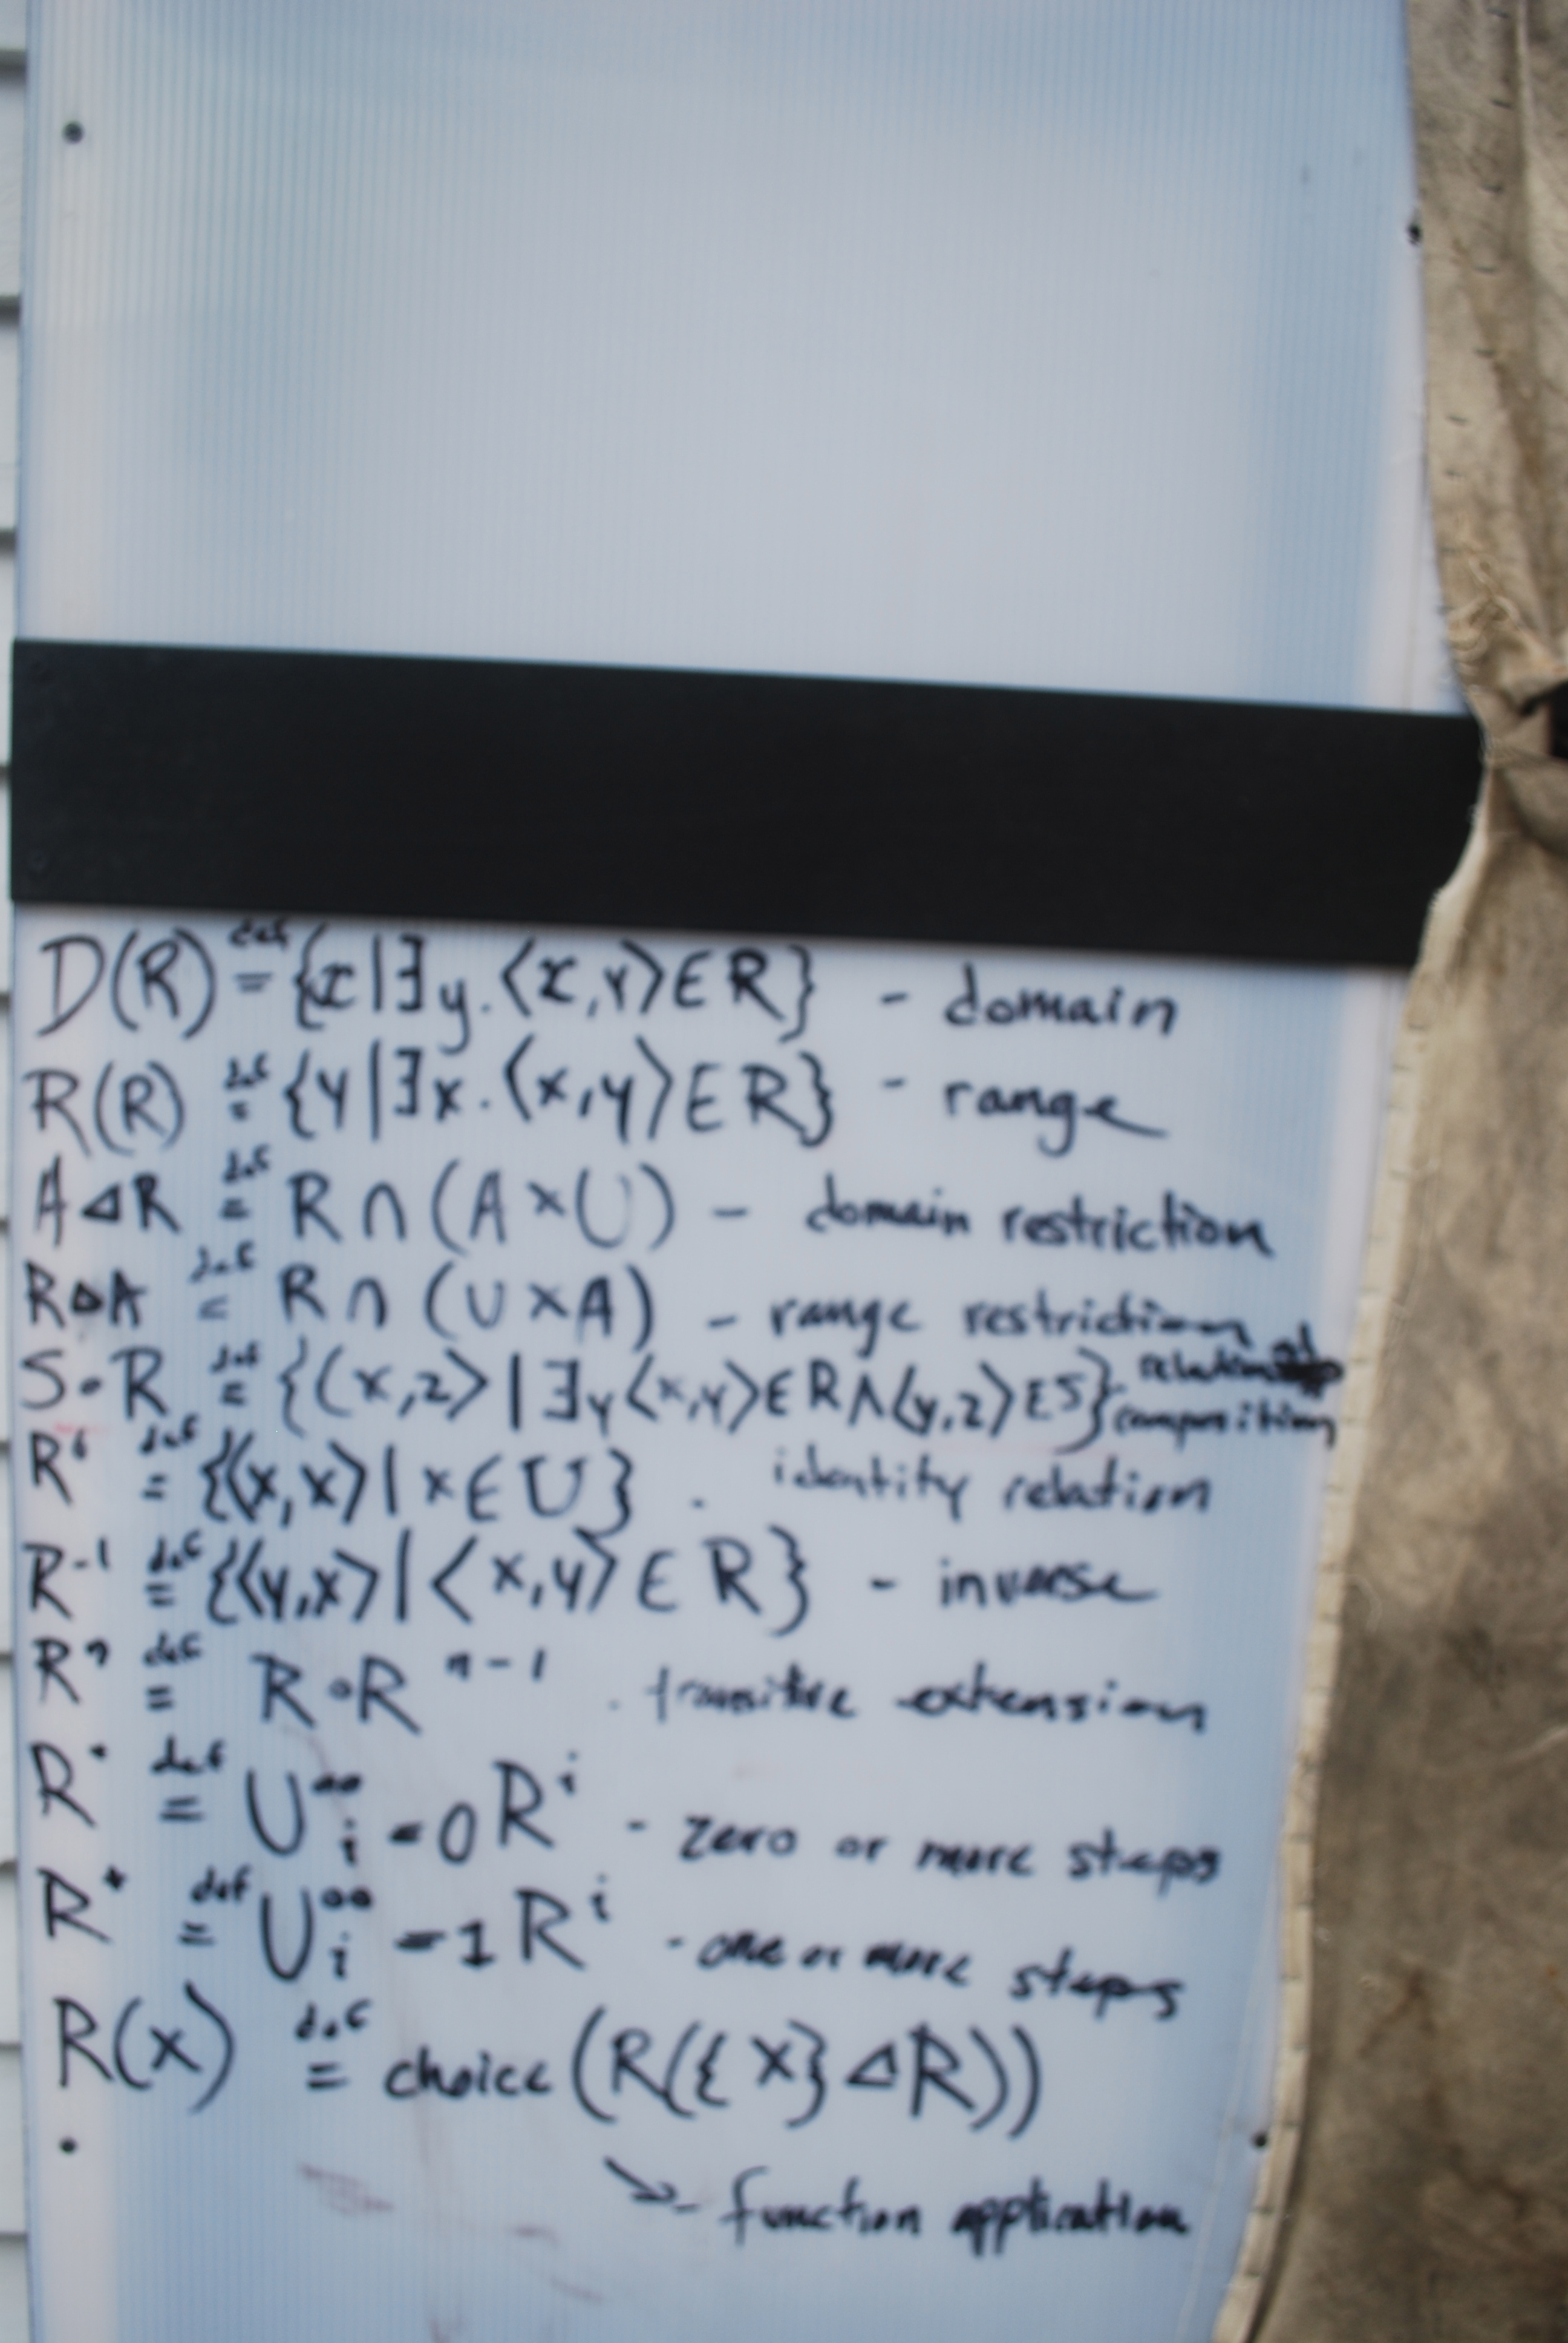 D(R) def= {x|∃y.⟨x,y⟩∈R} - domain
R(R) def= {y|∃x.⟨x,y⟩∈R} - range
A⊲R def= R∩(A×U) - domain restriction
R⊳A def= R∩(U×A) - range restriction
S∘R def= {⟨x,z⟩|∃y⟨x,y⟩∈R∧⟨y,z⟩∈S} - relational composition
R⁰ def= {⟨x,x⟩|x∈U} - identity relation
R⁻¹ def= {⟨y,x⟩|⟨x,y⟩∈R} - inverse
Rⁿ def= R∘Rⁿ⁻¹ - transitive extension
R* def= U∞i=0 Rⁱ - zero or more steps
R⁺ def= U∞i=1 Rⁱ - one or more steps
R(x) def= choice(R({x}⊲R))
↘- function application